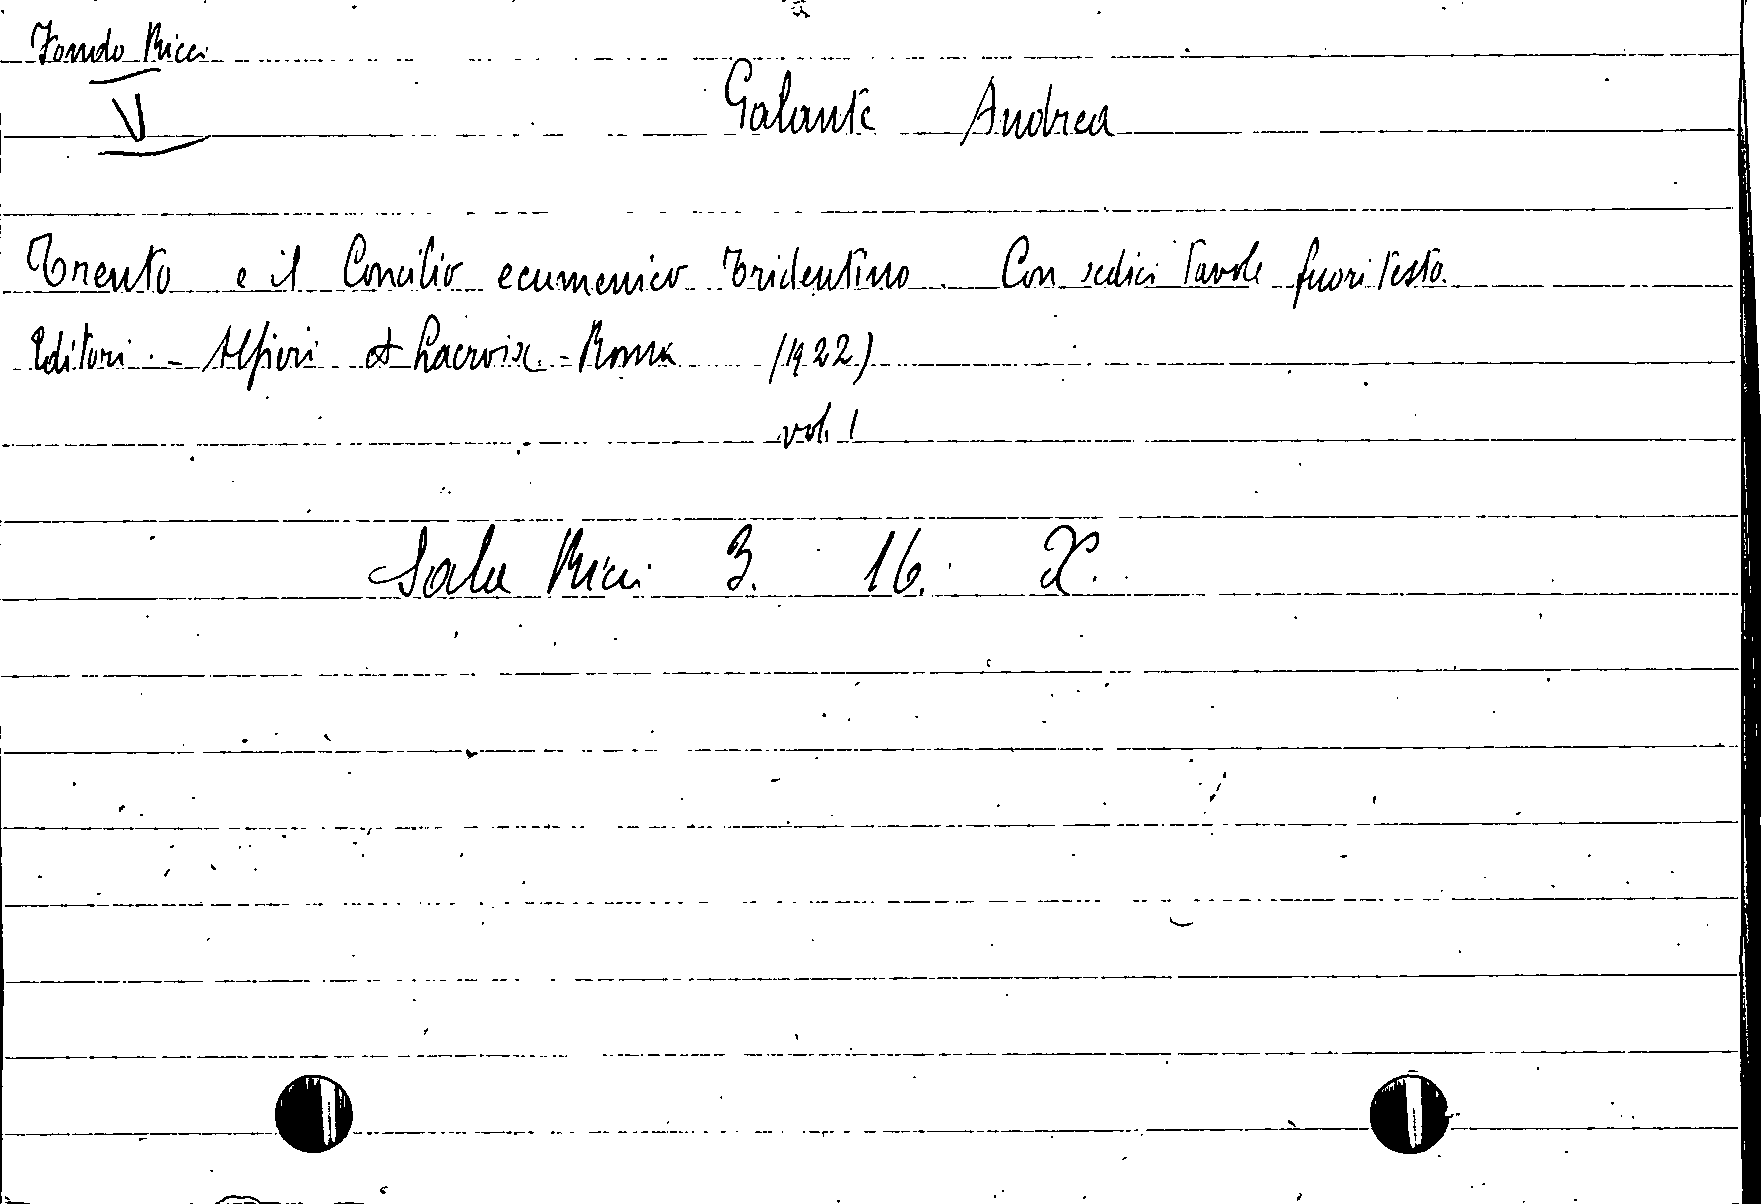 Fondo Ricci
V
Galante Andrea
Trento e il Concilio ecumenico Tridentino. Con sedici tavole fuori testo.
Editori - Alfieri & Lacroix - Roma (1922)
vol. 1
Sala Ricci 3. 16. X.